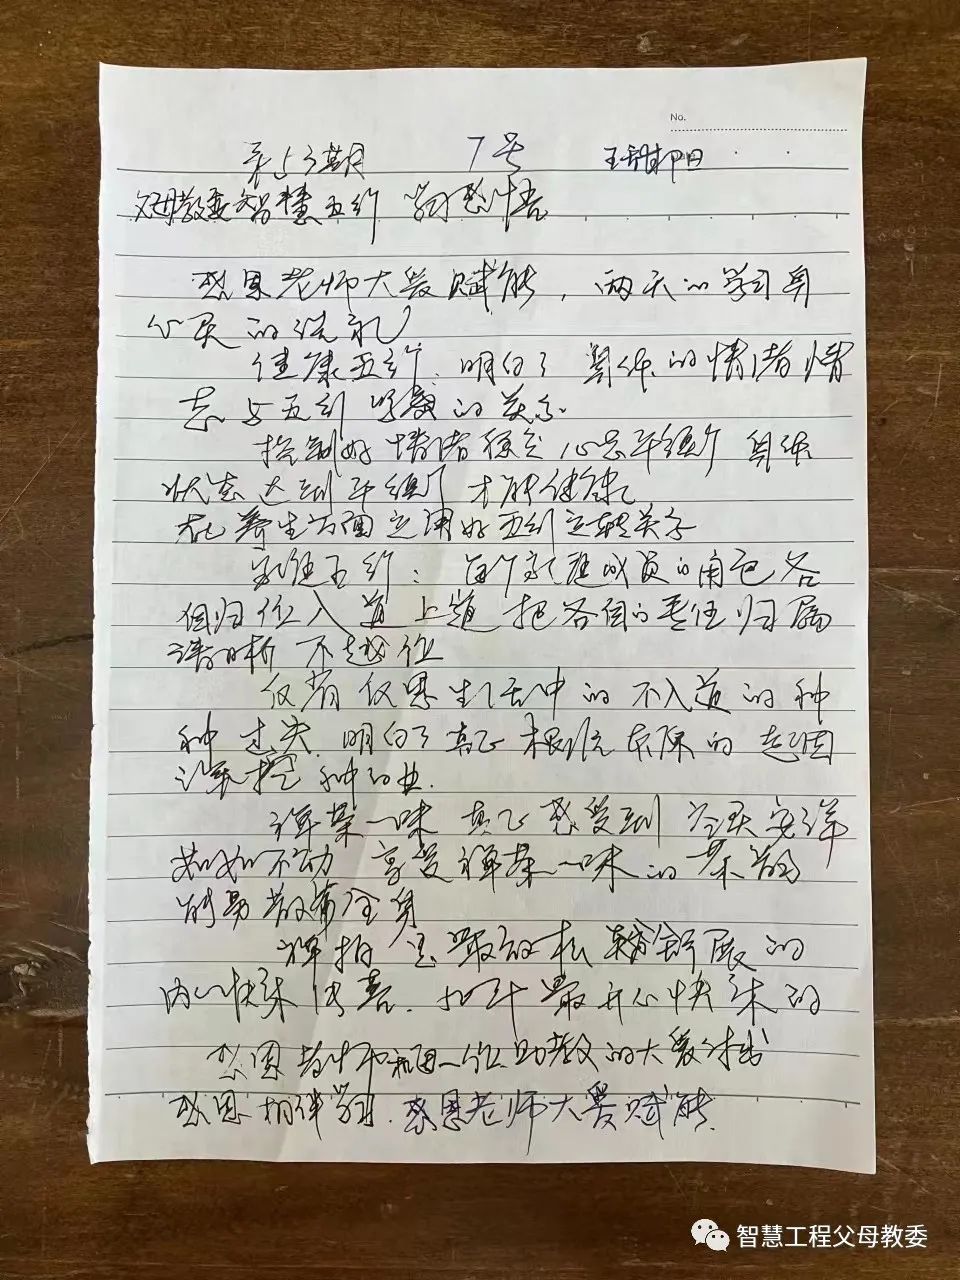 No.
第53期 7号 王甜阳
父母教委智慧五行 学习感悟
感恩老师大爱赋能，两天的学习身
心灵的洗礼
健康五行. 明白了 身体的情绪情
志与五行 的关系
控制好情绪 心态平衡 身体
状态达到平衡 才能健康
在养生方面 用好五行 关系
家庭五行：每个家庭成员的角色各
自归位入道上道 把各自的责任归属
清晰 不越位
反省反思生活中的不入道的种
种过失. 明白了真正 的起因
种的业.
禅茶一味 真正感受到 安详
如如不动 享受禅茶一味的茶
散布全身
禅拍 是最放松 舒展的
内心快乐 喜. 最开心快乐的
感恩老师和每一位助教的大爱付出
感恩相伴学习. 感恩老师大爱赋能.
智慧工程父母教委